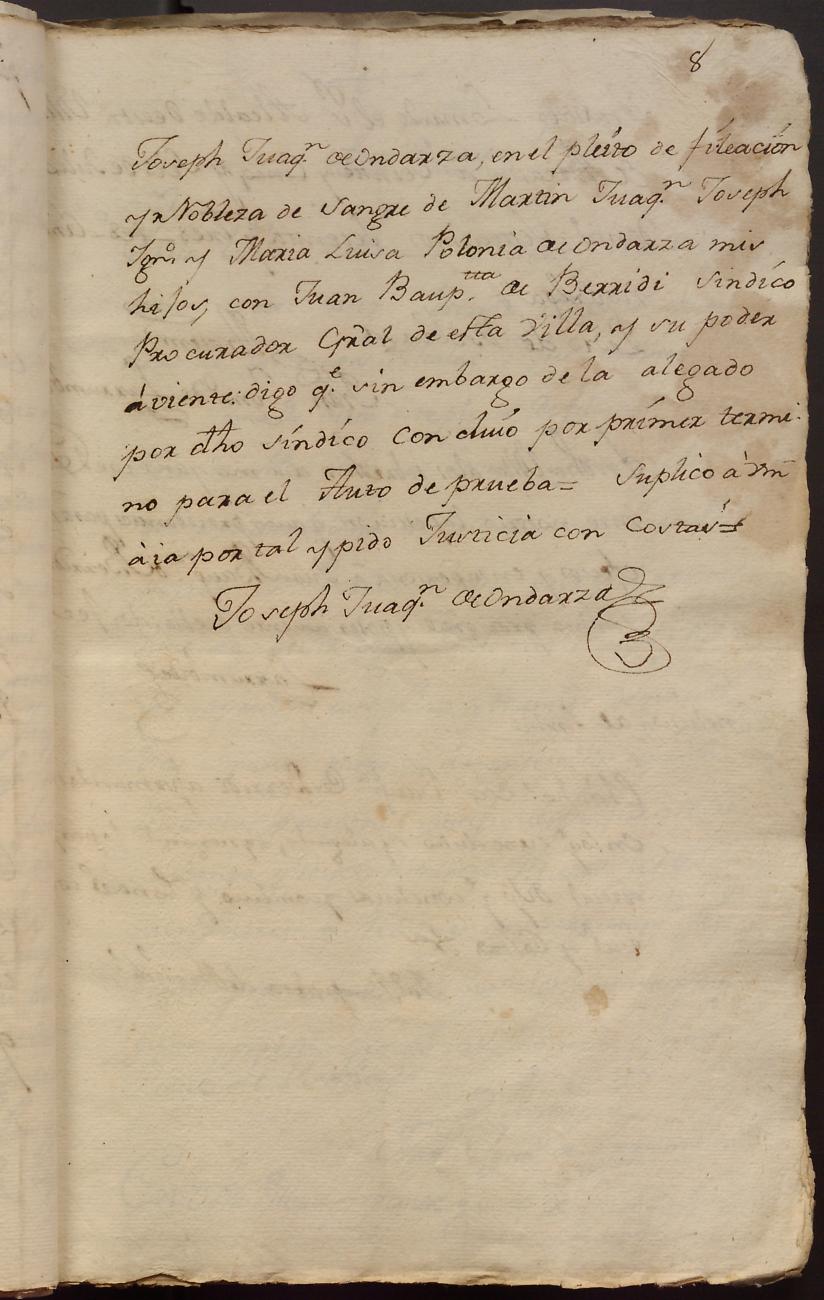 8
Joseph Juaqⁿ. de Ondarza, en el pleito de fileación
y Nobleza de Sangre de Martin Juaqⁿ. Joseph
Ignᵒ. y Maria Luisa Polonia de Ondarza mis
hijos, con Juan Baupᵗᵗᵃ. de Berridi Sindíco
Procurador Gr̃al de esta Villa, y su poder
áviente: digo qᵉ. sin embargo de la alegado
por dho síndíco Concluió por prímer termi-
no para el Auto de prueba= Suplico à Vm̃
àia por tal y pido Justicia con Costas=
Joseph Juaqⁿ. de Ondarza